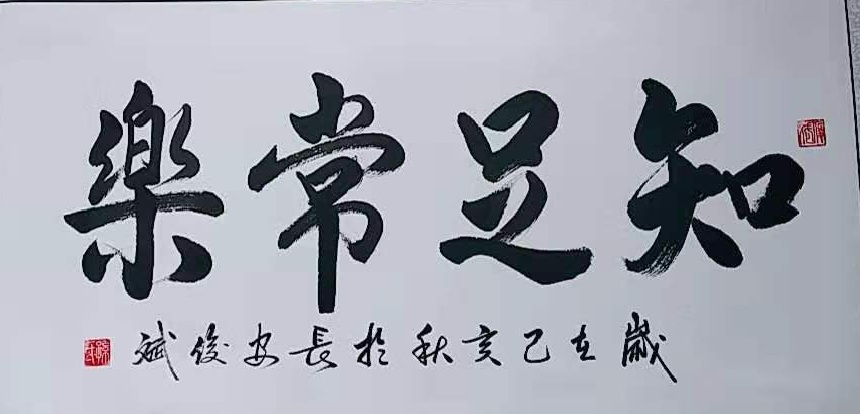 知足常樂
歲在己亥秋於長安俊斌